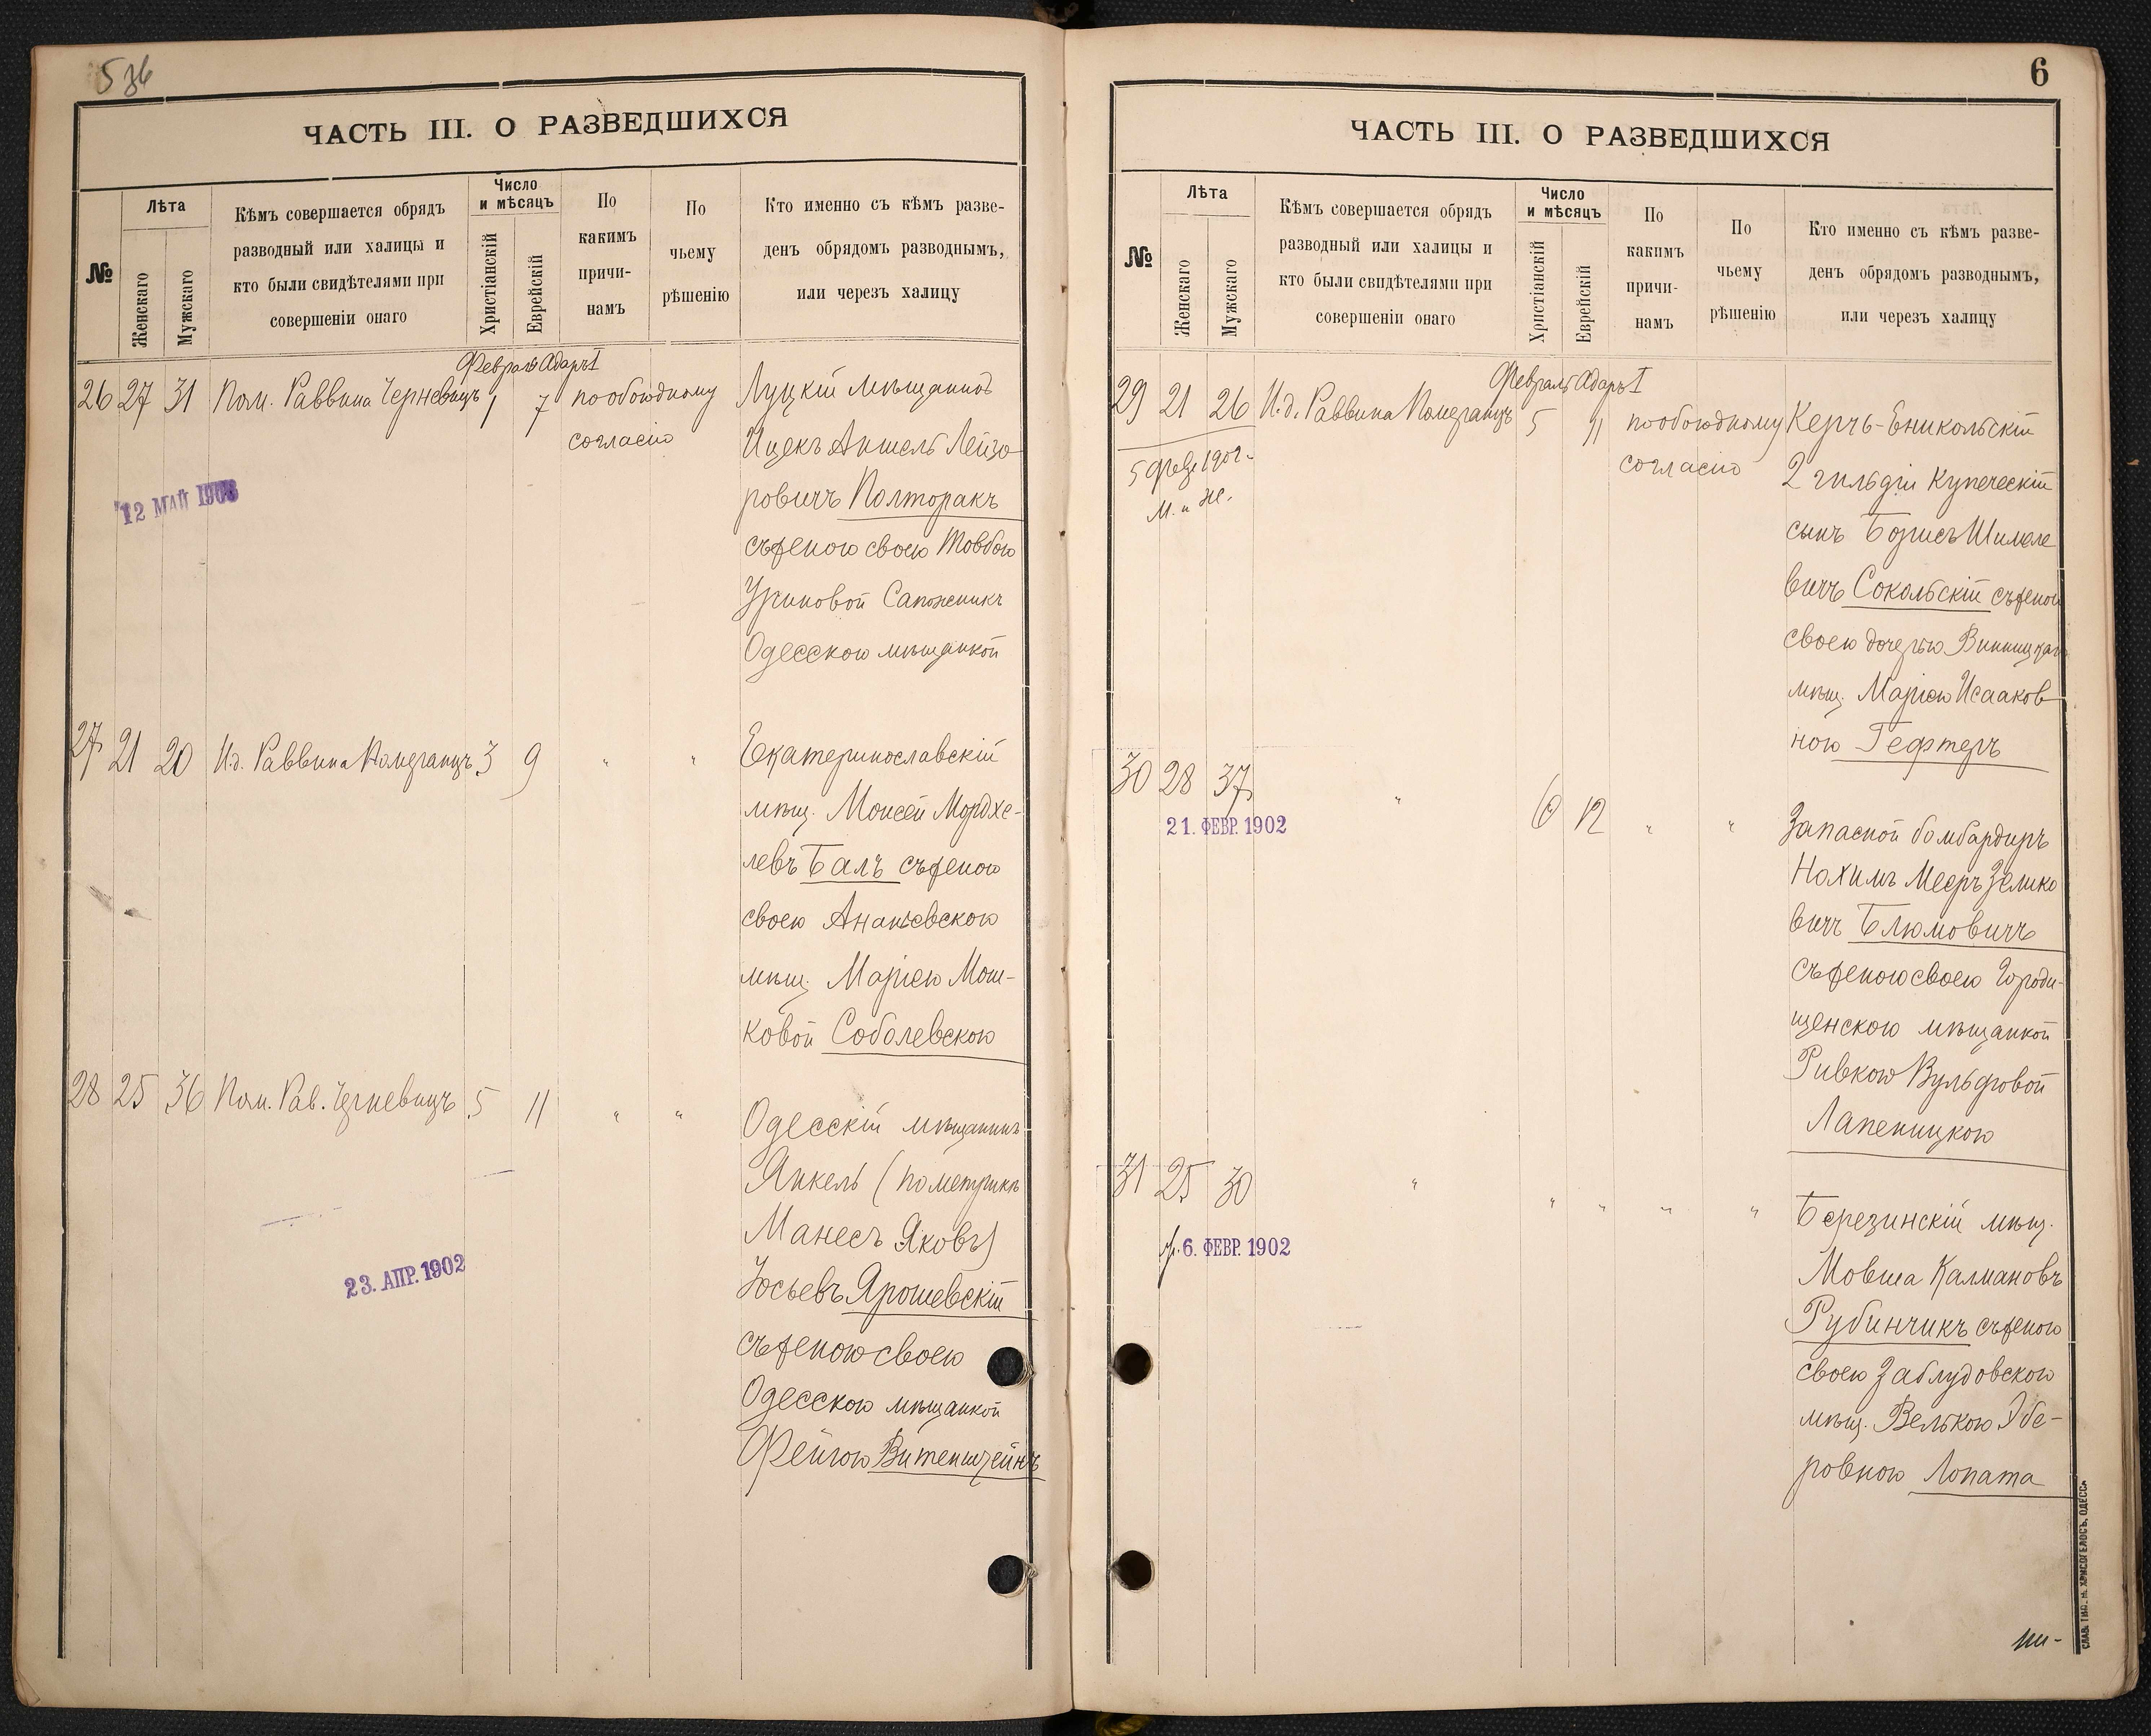 536
ЧАСТЬ III. О РАЗВЕДШИХСЯ
№
Лѣта
Женскаго
Мужскаго
Кѣмъ совершается обрядъ
разводный или халицы и
кто были свидѣтелями при
совершеніи онаго
Число
и мѣсяцъ
Христіанскій
Еврейскій
По
какимъ
причи-
намъ
По
чьему
рѣшенію
Кто именно съ кѣмъ разве-
денъ обрядомъ разводнымъ,
или черезъ халицу
Февраля Адаръ I
26 27 31 Пом. Раввина Черневицъ 1 7 по обоюдному
согласію
Луцкій мѣщанинъ
Ицекъ Аншель Лейзо
ровичъ Полторакъ
съ женою своею Товбою
Уриновой Сапожникъ
Одесскою мѣщанкой
12 МАЙ
27 21 20 И.д. Раввина Померанцъ 3 9 " "
Екатеринославскій
мѣщ. Моисей Мордхе-
левъ Балъ съ женою
своею Ананьевскою
мѣщ. Маріею Мош-
ковой Соболевскою
28 25 36 Пом. Рав. Черневицъ 5 11 " "
Одесскій мѣщанинъ
Янкель (по метрикѣ
Манесъ Яковъ)
Іосьевъ Ярошевскій
съ женою своею
Одесскою мѣщанкой
Фейгою Витенштейнъ
23. АПР. 1902
6
ЧАСТЬ III. О РАЗВЕДШИХСЯ
№
Лѣта
Женскаго
Мужскаго
Кѣмъ совершается обрядъ
разводный или халицы и
кто были свидѣтелями при
совершеніи онаго
Число
и мѣсяцъ
Христіанскій
Еврейскій
По
какимъ
причи-
намъ
По
чьему
рѣшенію
Кто именно съ кѣмъ разве-
денъ обрядомъ разводнымъ,
или черезъ халицу
Февраль Адаръ I
29 21 26 И.д. Раввина Померанцъ 5 11 по обоюдному
согласію
5 февр 1902
м. и ж.
Керчь-Еникольскій
2 гильдіи купеческій
сынъ Борисъ Шимеле
вичъ Сокольскій съ женою
своею дочерью Винницкаго
мѣщ. Маріею Исааков
ною Гефтеръ
30 28 37 " 6 12 " "
21. ФЕВР. 1902
Запасной бомбардиръ
Нохимъ Мееръ Зелико
вичъ Блюмовичъ
съ женою своею Городи-
щенскою мѣщанкой
Ривкою Вульфовой
Лапеницкою
31 25 30 " " " " "
6. ФЕВР. 1902
Березинскій мѣщ.
Мовша Калмановъ
Рубинчикъ съ женою
своею Заблудовскою
мѣщ. Велькою Эбе-
ровною Лопата
СЛАВ. ТИП. Н. ХРИСОГЕЛОСЪ, ОДЕССА